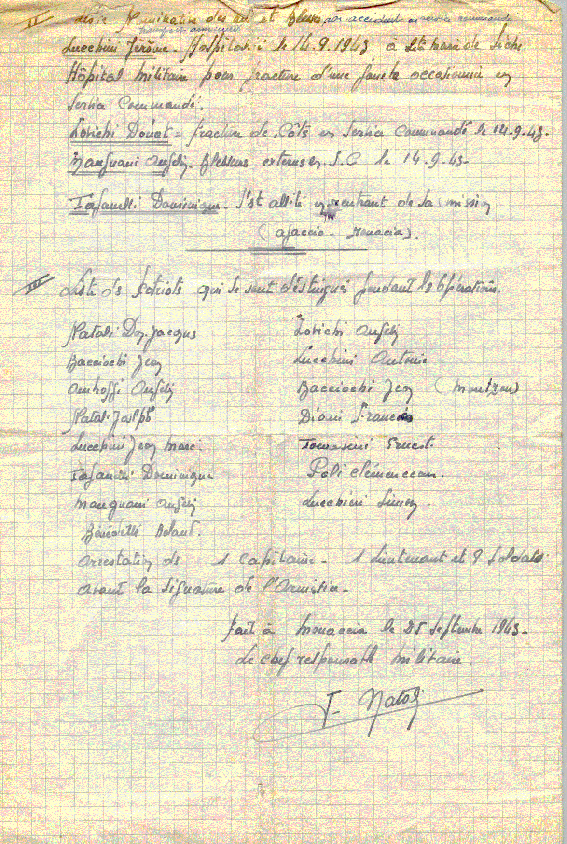 II Liste Nominative des et Blessés par accident en service commandé
Transports armement
Lucchini Jérôme - Hospitalisé le 14.9.1943 à Ste Marie de Siché
Hôpital militaire pour fracture d'une occasionnée en
Service Commandé.
Lovichi Donat = fracture de Côtes en Service Commandé le 14.9.43.
Mangnani Angelin Blessures externes en S.C le 14.9.43.
Tafanelli Dominique - S'est alité en rentrant de sa mission
(ajaccio - Monacia).
III Liste des Patriots qui se sont distingués pendant les opérations.
Natali Don Jacques
Lovichi Angelin
Bacciochi Jean
Lucchini Antoine
Angelin
Bacciochi Jean (
Natali Joseph
Diani Francois
Lucchini Jean Marc
Tomasini Ernest
Tafanelli Dominique
Poli Clémenceau.
Mangnani Angelin
Lucchini Simon
Bénédetti Roland.
Arrestation de 1 Capitaine - 1 Lieutenant et 9 Soldats
avant la signature de l'Armistice -
fait à Monaccia le 25 Septembre 1943 -
Le chef responsable Militaire
Natali